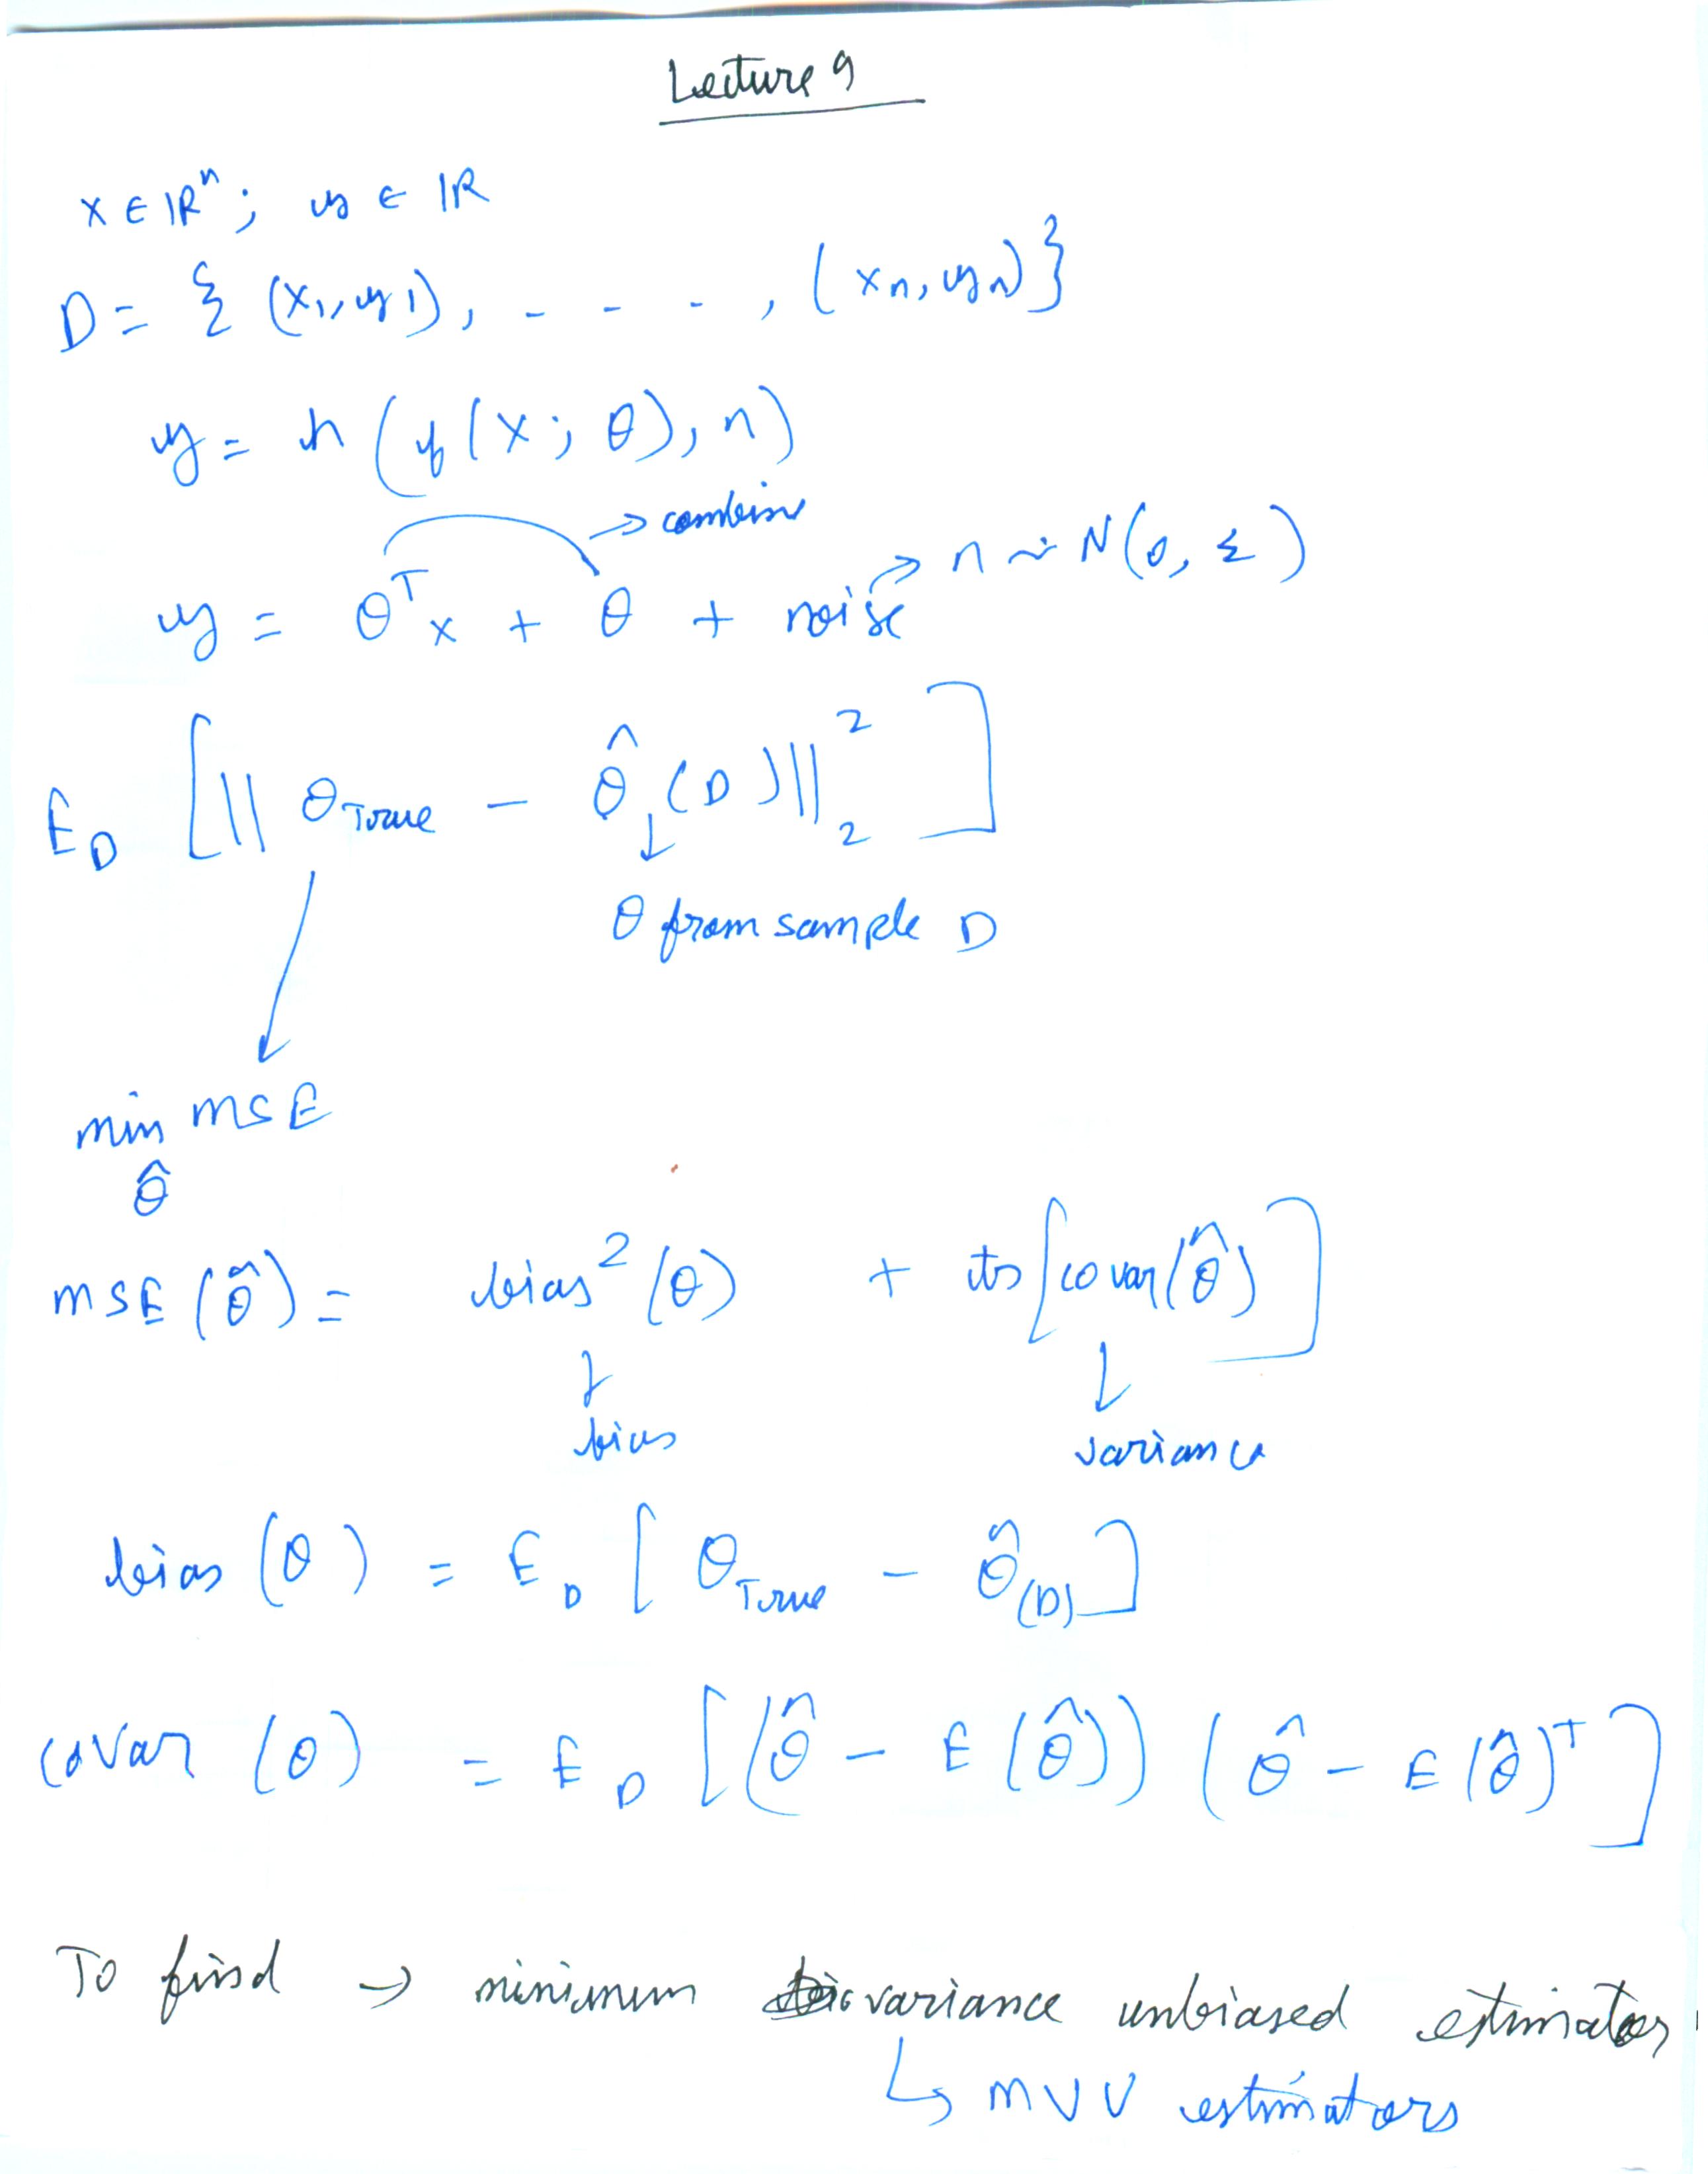 Lecture 9
x ∈ ℝⁿ ; y ∈ ℝ
D = { (x₁, y₁), - - - , (xₙ, yₙ) }
y = h ( y (x ; θ), n )
→ combine
y = θᵀx + θ + noise → n ~ N(0, Σ)
E_D [ || θ_True - θ̂(D) ||₂² ]
↓
θ from sample D
min MSE
θ̂
MSE (θ̂) = bias² (θ) + tr [ covar(θ̂) ]
↓ ↓
bias variance
bias (θ) = E_D [ θ_True - θ̂_(D) ]
covar (θ) = E_D [ (θ̂ - E(θ̂)) (θ̂ - E(θ̂)ᵀ ]
To find → minimum variance unbiased estimators
↳ MVU estimators